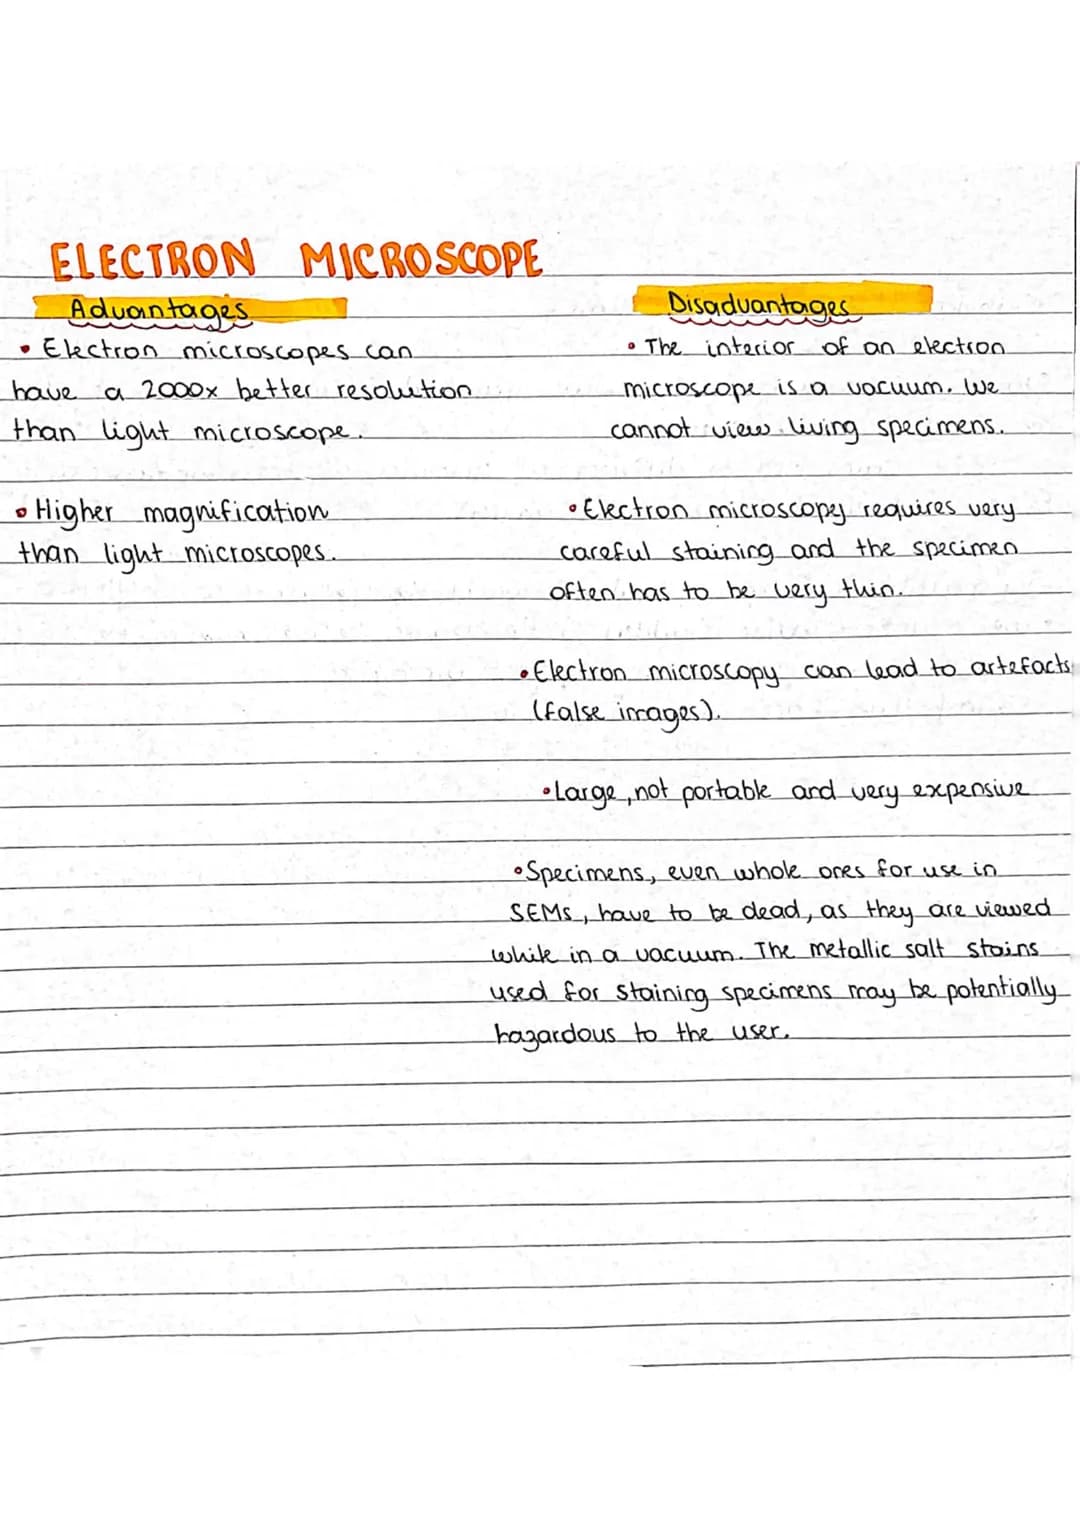 ELECTRON MICROSCOPE
Advantages
• Electron microscopes can
have a 2000x better resolution
than light microscope.
• Higher magnification
than light microscopes.
Disadvantages
• The interior of an electron
microscope is a vacuum. We
cannot view living specimens.
• Electron microscopy requires very
careful staining and the specimen
often has to be very thin.
• Electron microscopy can lead to artefacts
(false images).
• Large, not portable and very expensive
• Specimens, even whole ones for use in
SEMs, have to be dead, as they are viewed
while in a vacuum. The metallic salt stains
used for staining specimens may be potentially
hazardous to the user.